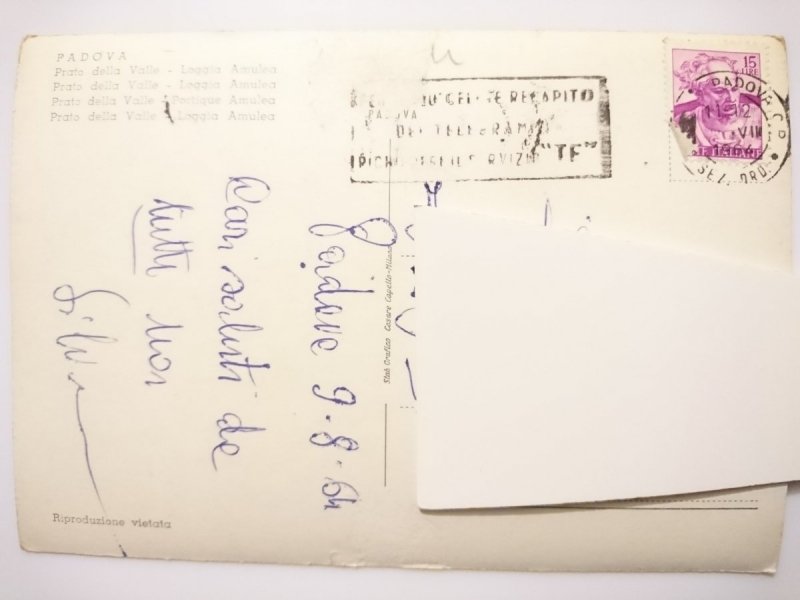 PADOVA
Prato della Valle - Loggia Amulea
Prato della Valle - Loggia Amulea
Prato della Valle - Portique Amulea
Prato della Valle - Loggia Amulea
RECAPITO
PADOVA
DEI TELEGRAMMI
"TF"
15
LIRE
PADOVA C.P.
11-12
VIII
1964
TE ITALIANE
Padova 9-8-64
Cari saluti da
tutti noi
Stab. Grafico Cesare Capello-Milano
Riproduzione vietata